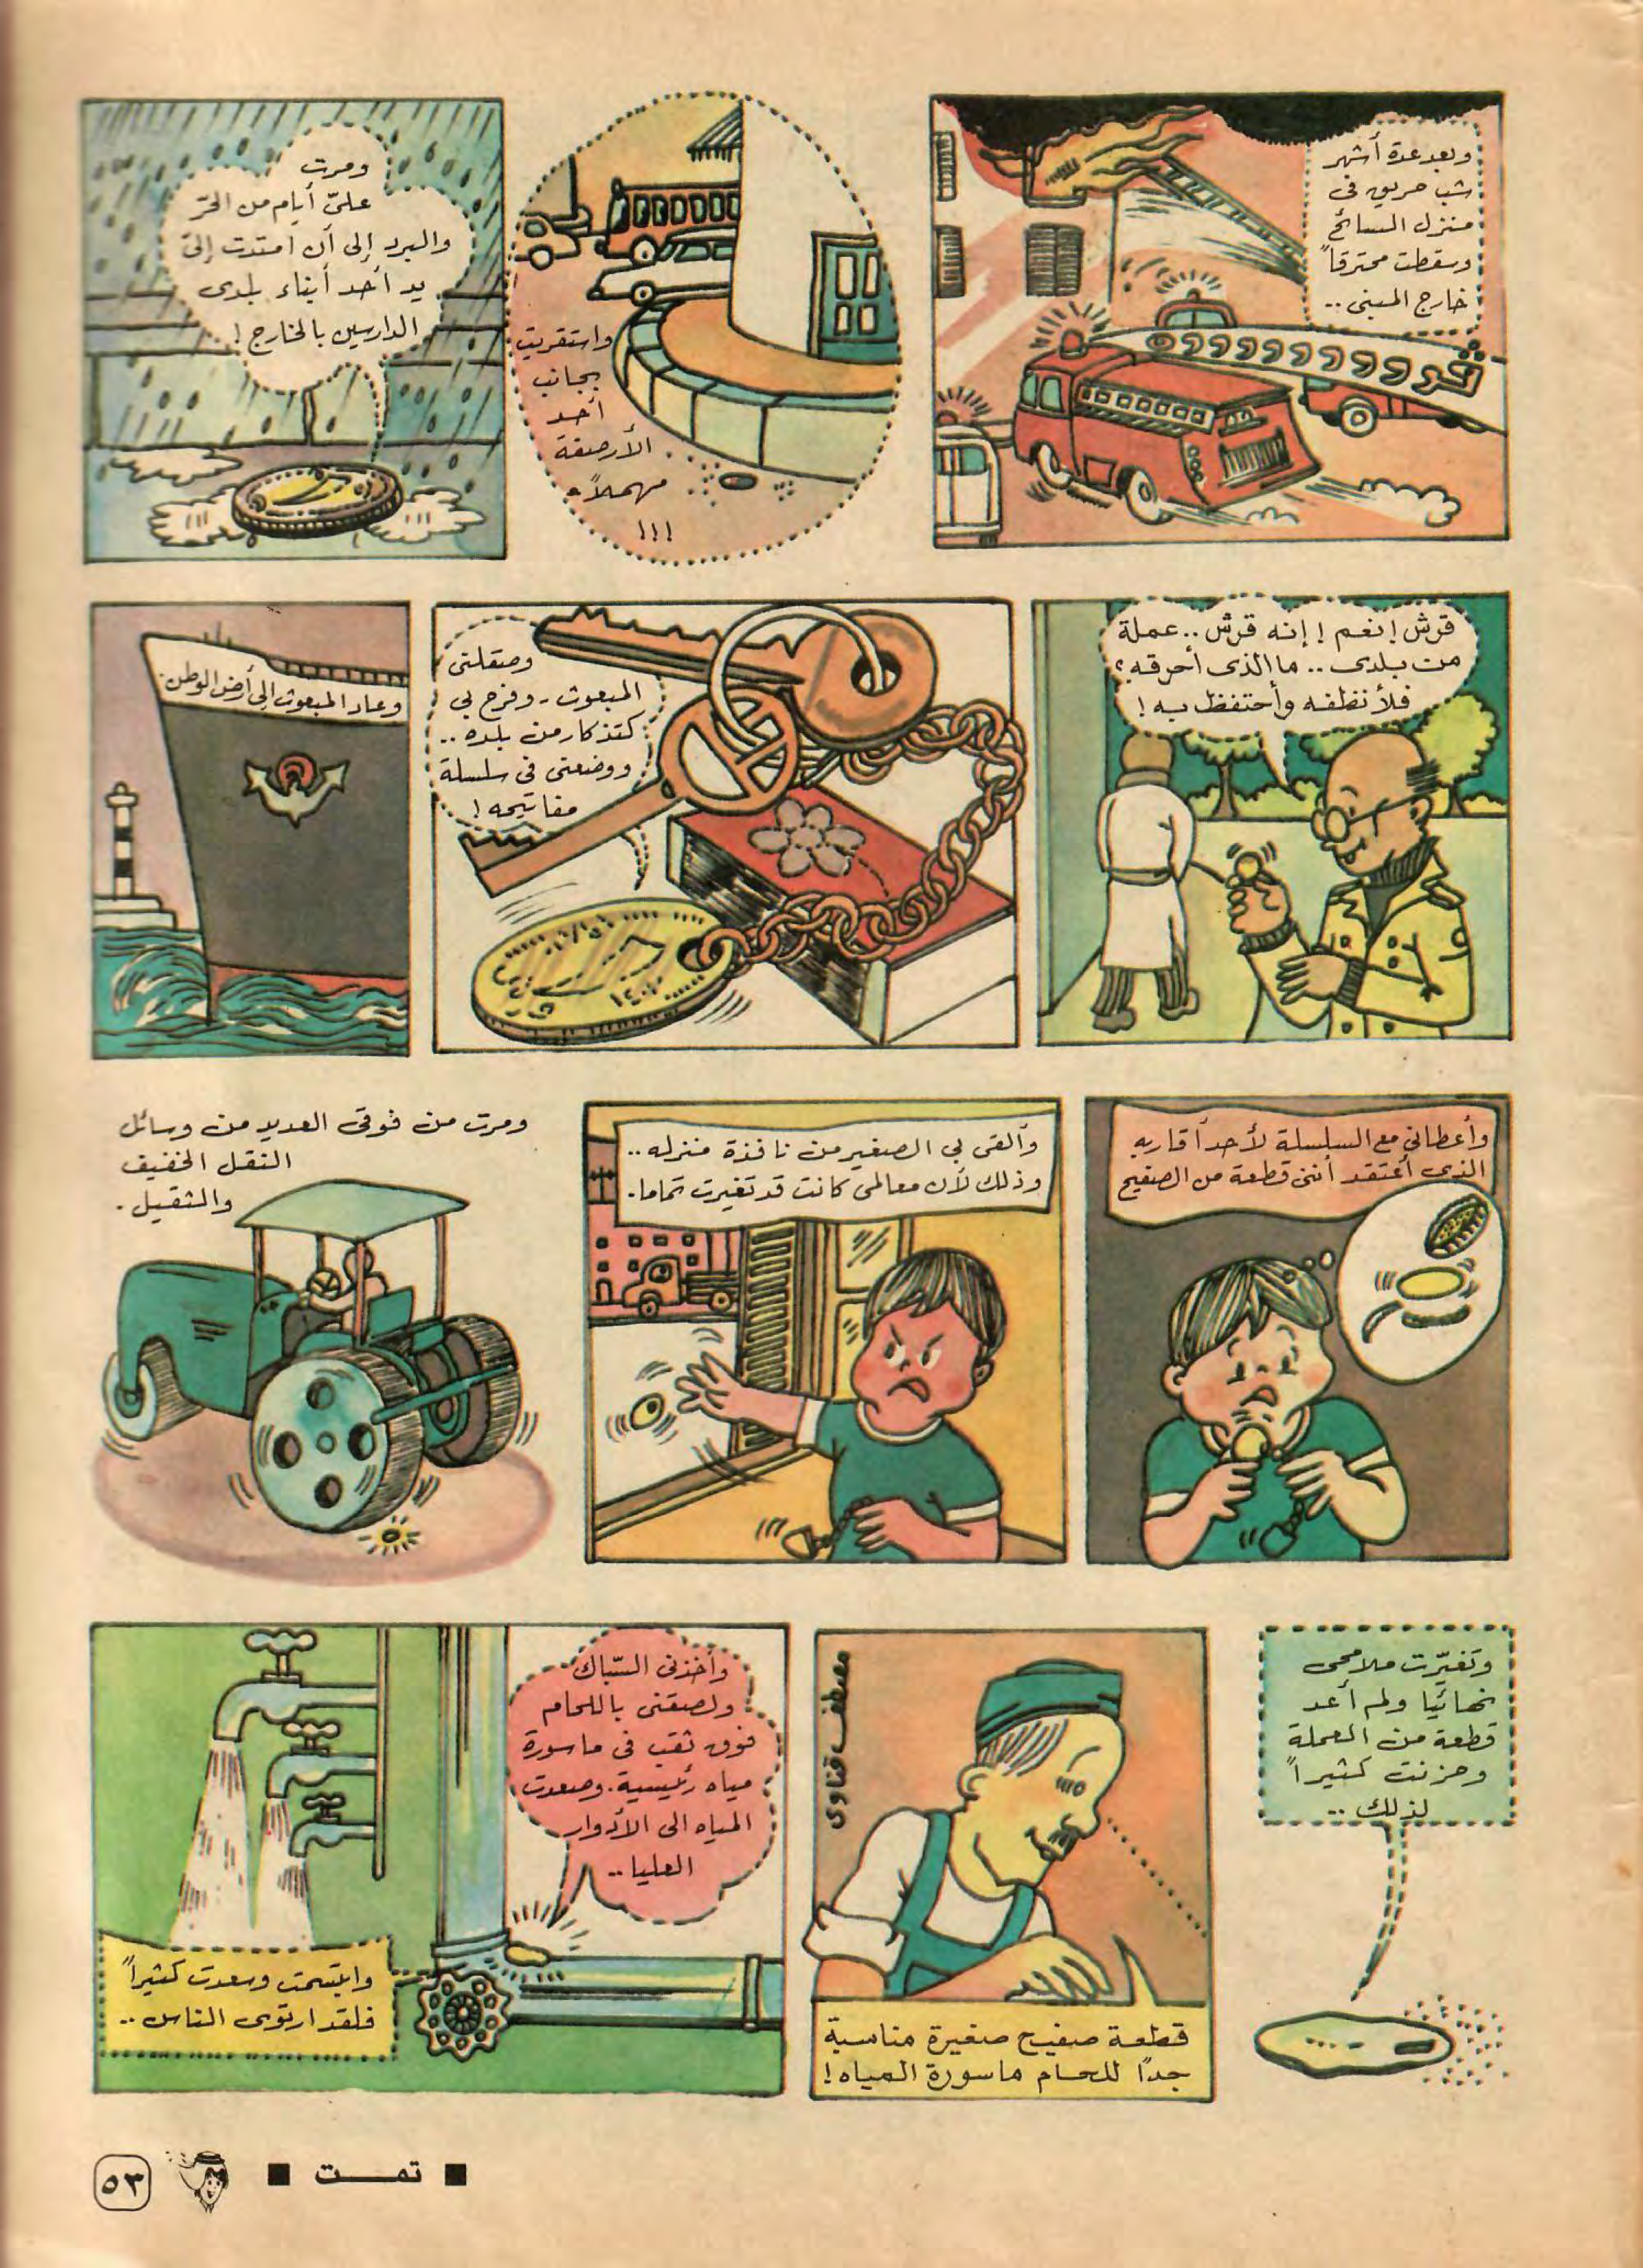 وبعد عدة أشهر
شب حريق فى
منزل السائح
وسقطت محترقاً
خارج المبنى ..
واستقريت
بجانب
أحد
الأرصفة
مهملاً
!!!
ومرت
علىّ أيام من الحرّ
والبرد إلى أن امتدت إلىّ
يد أحد أبناء بلدى
الدارسين بالخارج !
قرش ! نعم ! إنه قرش .. عملة
من بلدى .. ما الذى أحرقه ؟
فلأنظفه وأحتفظ به !
وصقلنى
المبعوث - وفرح بي
كتذكار من بلده ..
ووضعنى فى سلسلة
مفاتيحه !
١٤٠٢
وعاد المبعوث إلى أرض الوطن.
وأعطانى مع السلسلة لأحد أقاربه
الذى أعتقد أننى قطعة من الصفيح
وألقى بي الصغير من نافذة منزله ..
وذلك لأن معالمى كانت قد تغيرت تماما.
ومرت من فوقى العديد من وسائل
النقل الخفيف
والثقيل .
وتغيّرت ملامحى
نهائيا ولم أعد
قطعة من العملة
وحزنت كثيراً
لذلك ..
مصطفى قناوى
قطعة صفيح صغيرة مناسبة
جداً للحام ماسورة المياه !
وأخذنى السّباك
ولصقنى باللحام
فوق ثقب فى ماسورة
مياه رئيسية. وصعدت
المياه الى الأدوار
العليا ..
وابتسمت وسعدت كثيراً
فلقد ارتوى الناس ..
■ تمت ■
٥٣